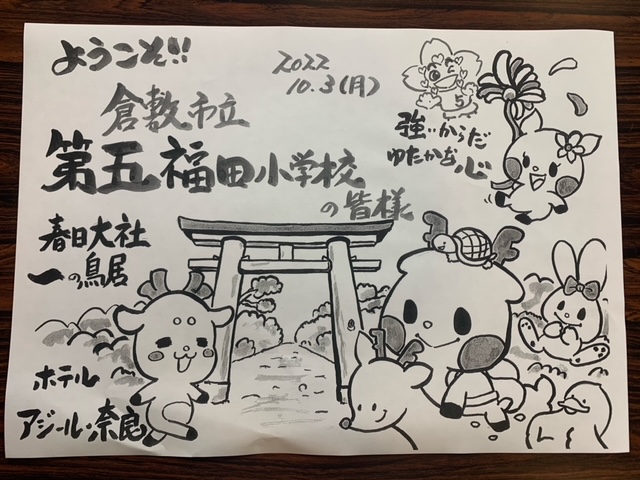 ようこそ!!
2022
10.3(月)
倉敷市立
第五福田小学校
の皆様
5
強いからだ
ゆたかな心
春日大社
一の鳥居
ホテル
アジール・奈良